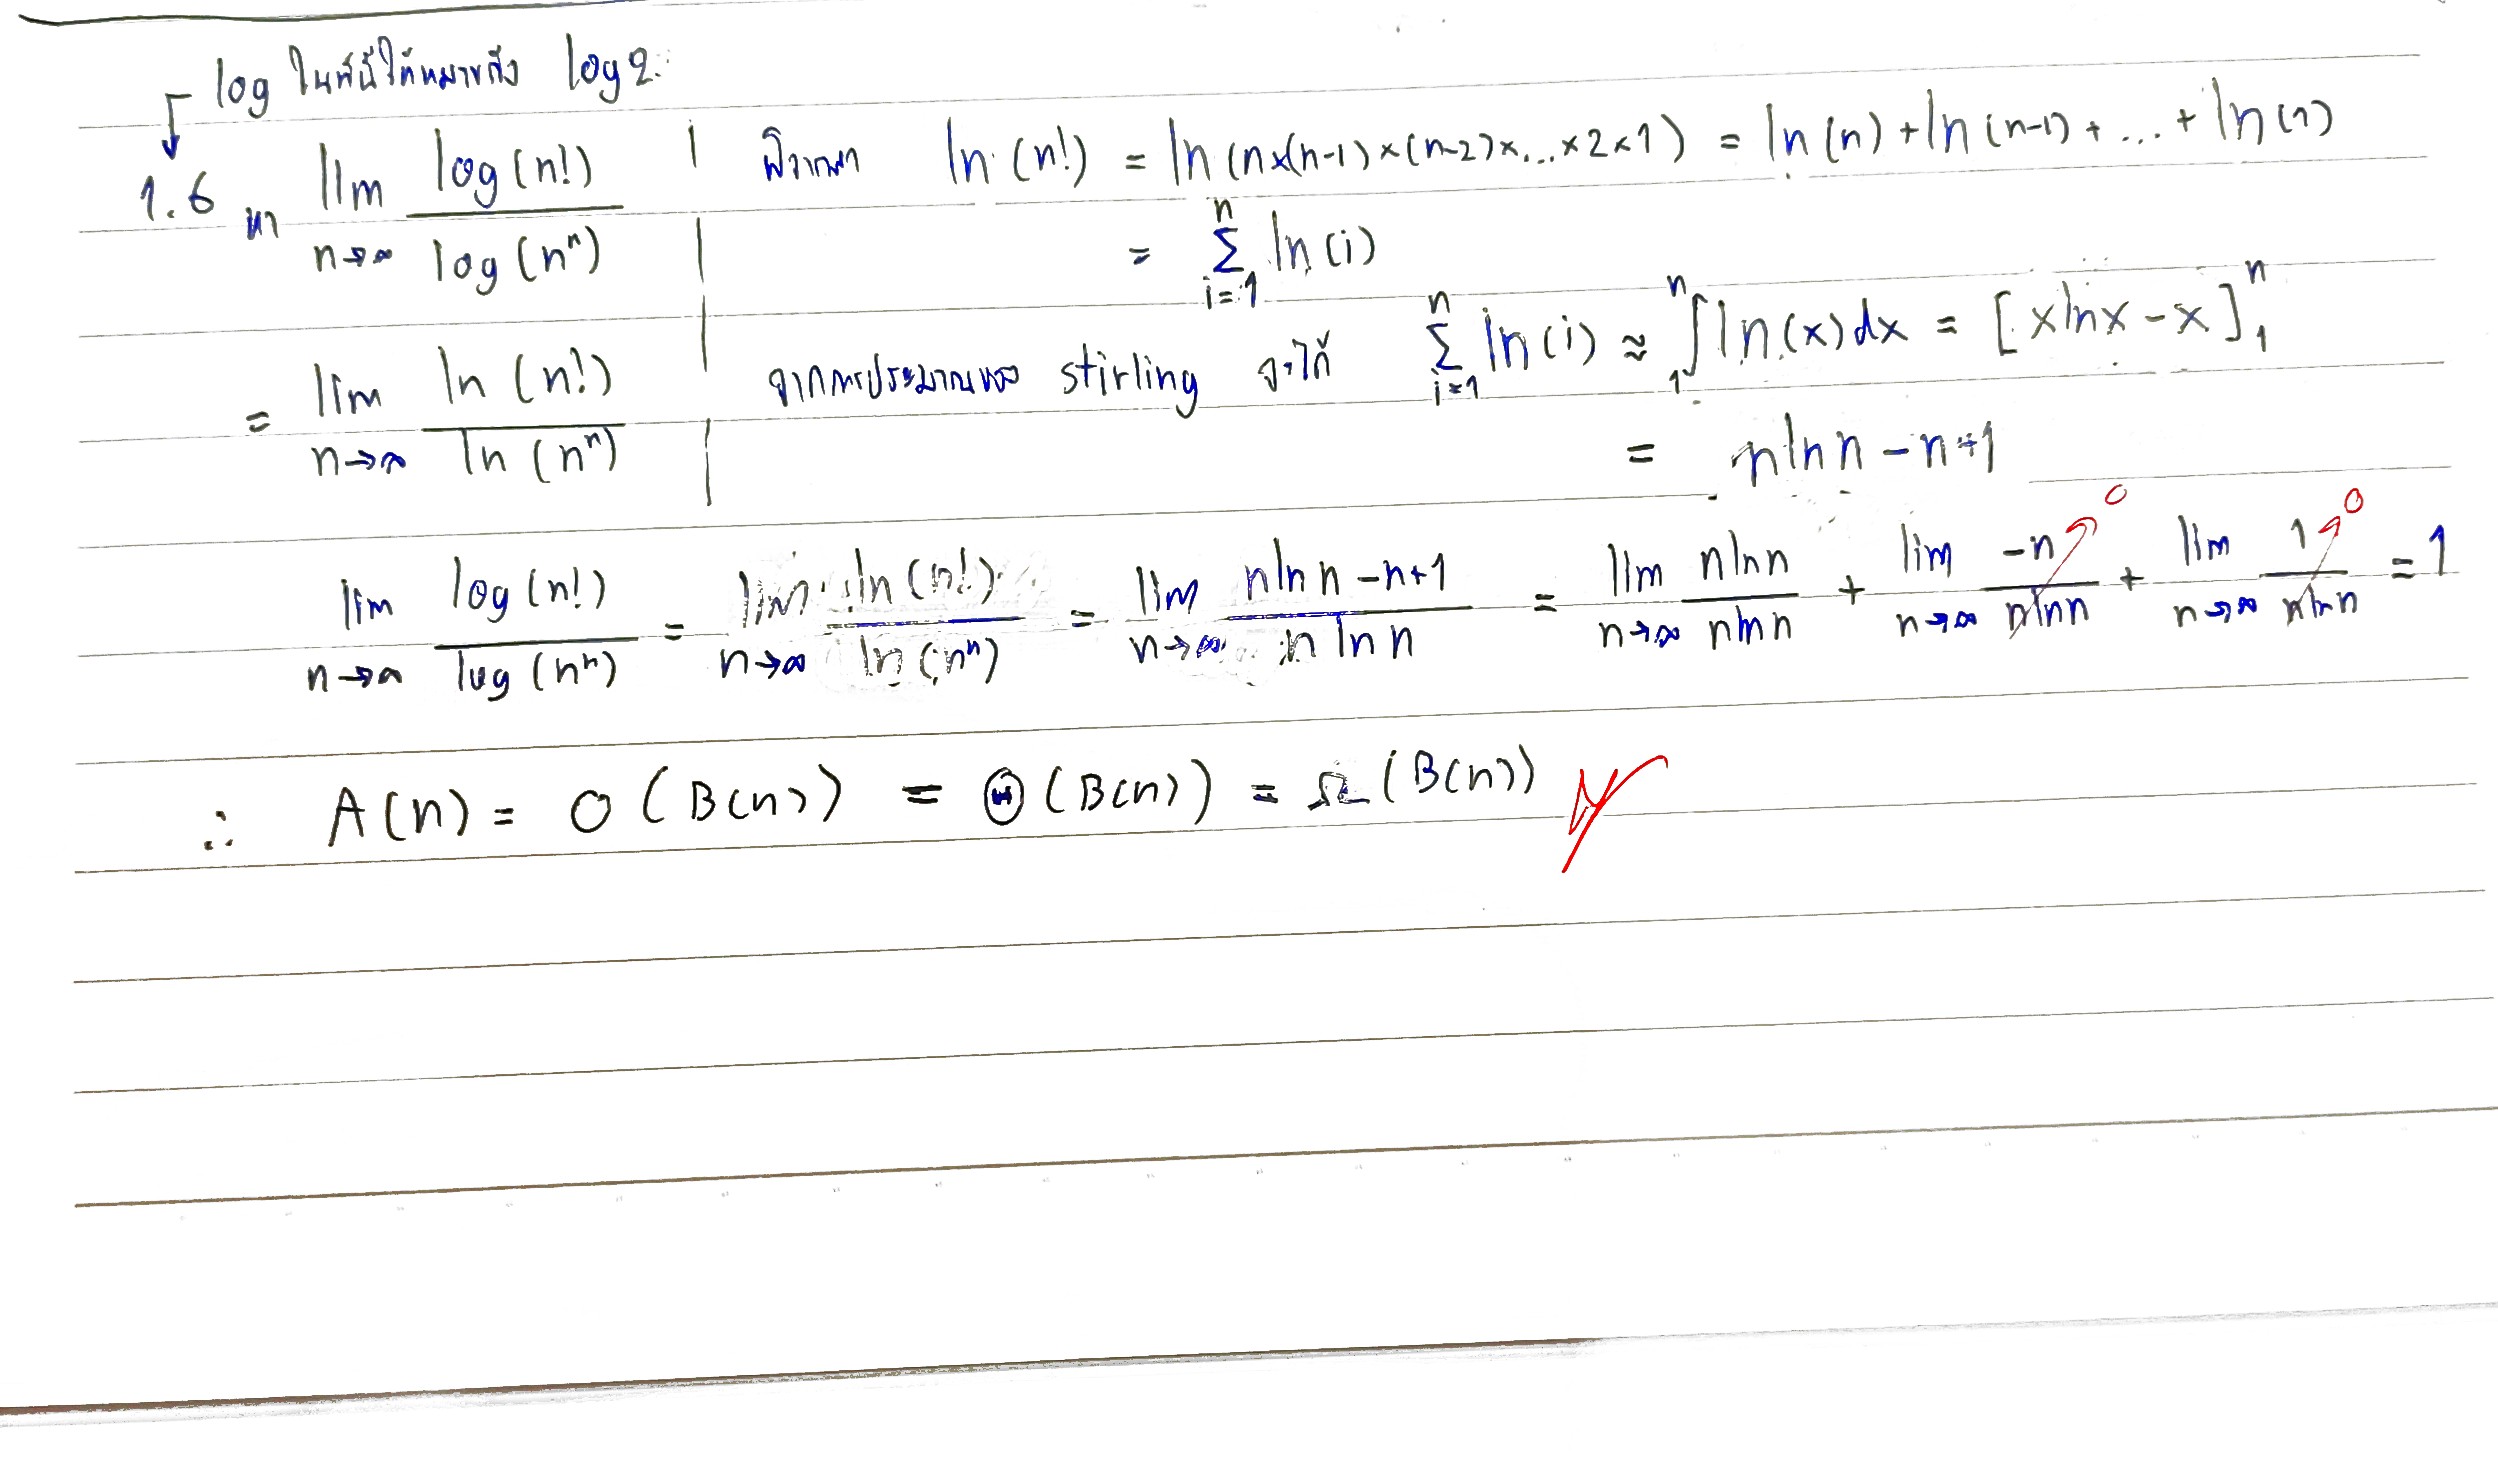 log ในที่นี้ให้หมายถึง log 2
1.6 หา lim n→∞ log(n!) / log(n^n) | พิจารณา ln(n!) = ln(n×(n-1)×(n-2)×...×2×1) = ln(n)+ln(n-1)+...+ln(1)
= Σ i=1 n ln(i)
= lim n→∞ ln(n!) / ln(n^n) | จากการประมาณของ stirling จะได้ Σ i=1 n ln(i) ≈ ∫ 1 n ln(x)dx = [xlnx-x] 1 n
= nlnn-n+1
lim n→∞ log(n!) / log(n^n) = lim n→∞ ln(n!) / ln(n^n) = lim n→∞ nlnn-n+1 / nlnn = lim n→∞ nlnn / nlnn + lim n→∞ -n / nlnn 0 + lim n→∞ 1 / nlnn 0 = 1
∴ A(n) = O(B(n)) = Θ(B(n)) = Ω(B(n))